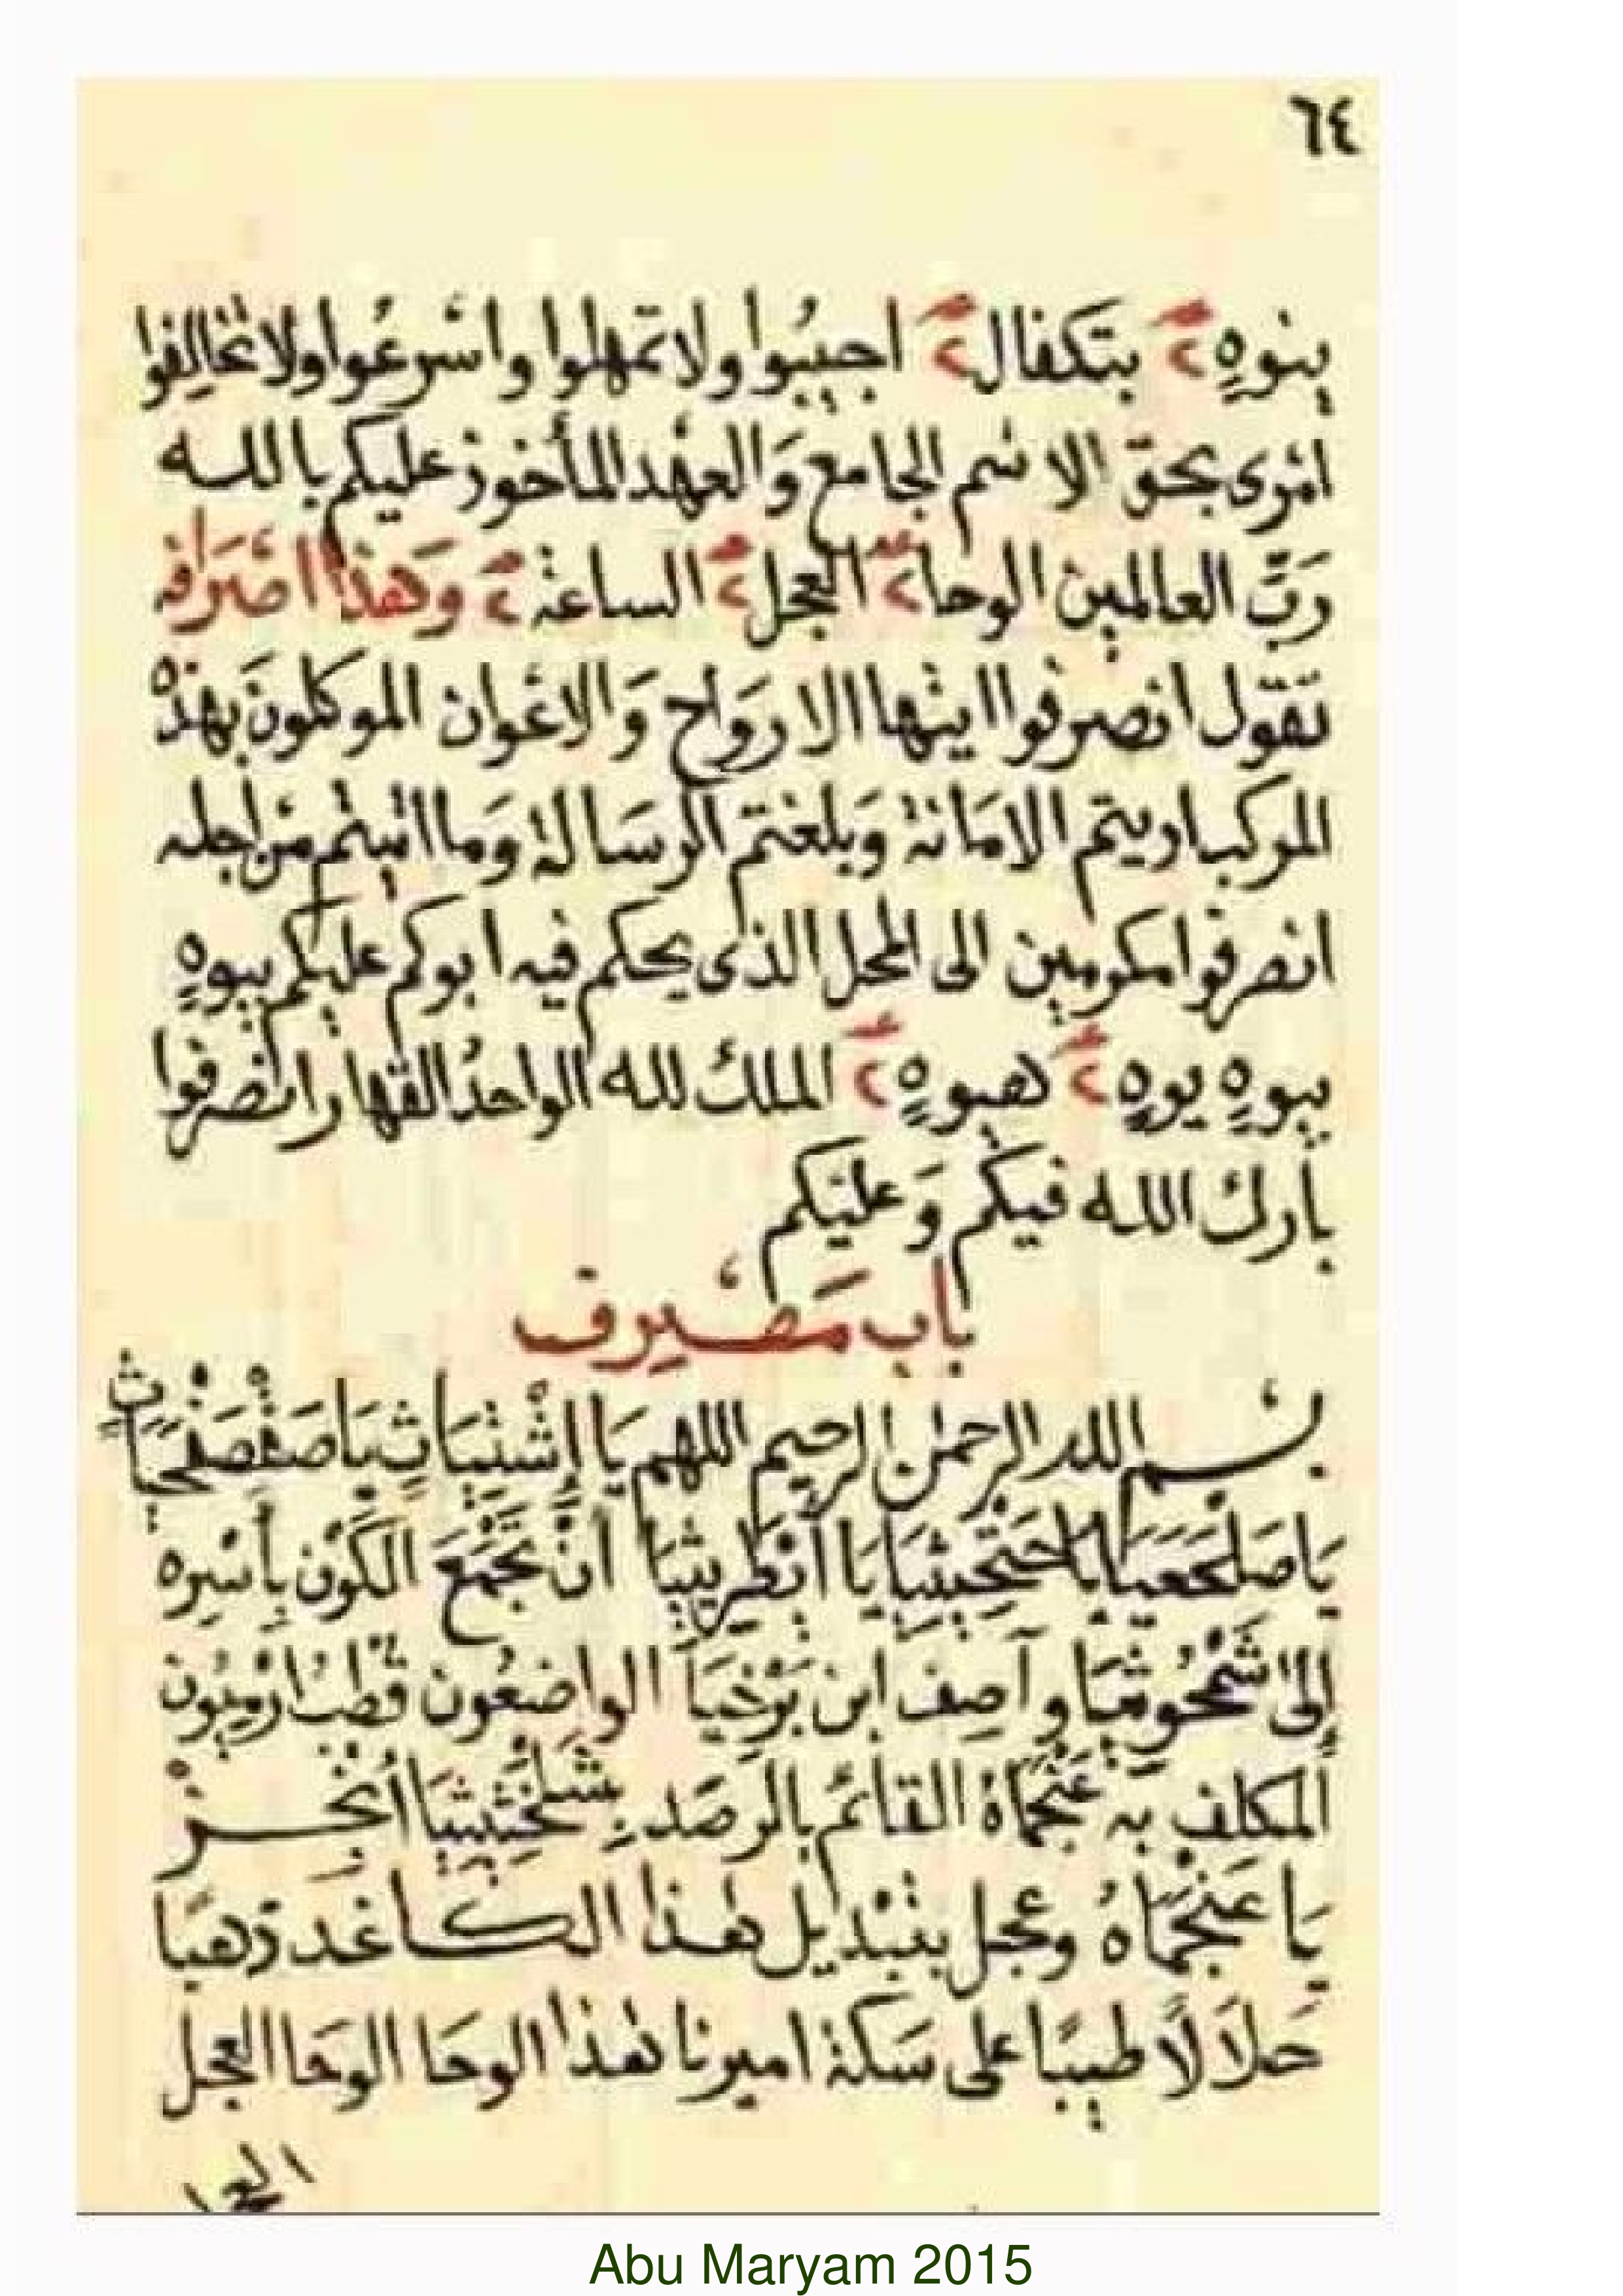 ٦٤
ينوهٍ ٢ بتكفال ٢ اجيبوا ولا تمهلوا واسرعوا ولا تخالفوا
امرى بحق الاسم الجامع وَالعهد المأخوذ عليكم بالله
رَبّ العالمين الوحا ٢ العجل ٢ الساعة ٢ وَهذا اصرافه
تقول انصرفوا ايتها الارواح وَالاعوان الموكلونَ بهذه
المركب اديتم الامانة وَبلغتم الرسالة وَما اتيتم من اجله
انصرفوا مكرمين الى المحل الذى يحكم فيه ابوكم عليكم بيوهٍ
بيوهٍ يوهٍ ٢ هيوهٍ ٢ الملك لله الواحدُ القهار انصرفوا
بارك الله فيكم وَعليكم
باب
بسم الله الرحمن الرحيم اللهم يَا
يَا أنْ تجْمَعَ الكَوْن بأسْرِه
إلىٰ وآصِف ابن بَرْخيَا الواضِعُون قطب
المكلف به عَنْجَمَاهُ القائم بالرصَدِ أنجزْ
يَا عَنجَمَاهُ وعجل بتبديل هذا الكاغد ذهبًا
حَلاَلاً طيبًا على سَكة اميرنا هٰذا الوحَا الوحَا العجل
العجل
Abu Maryam 2015